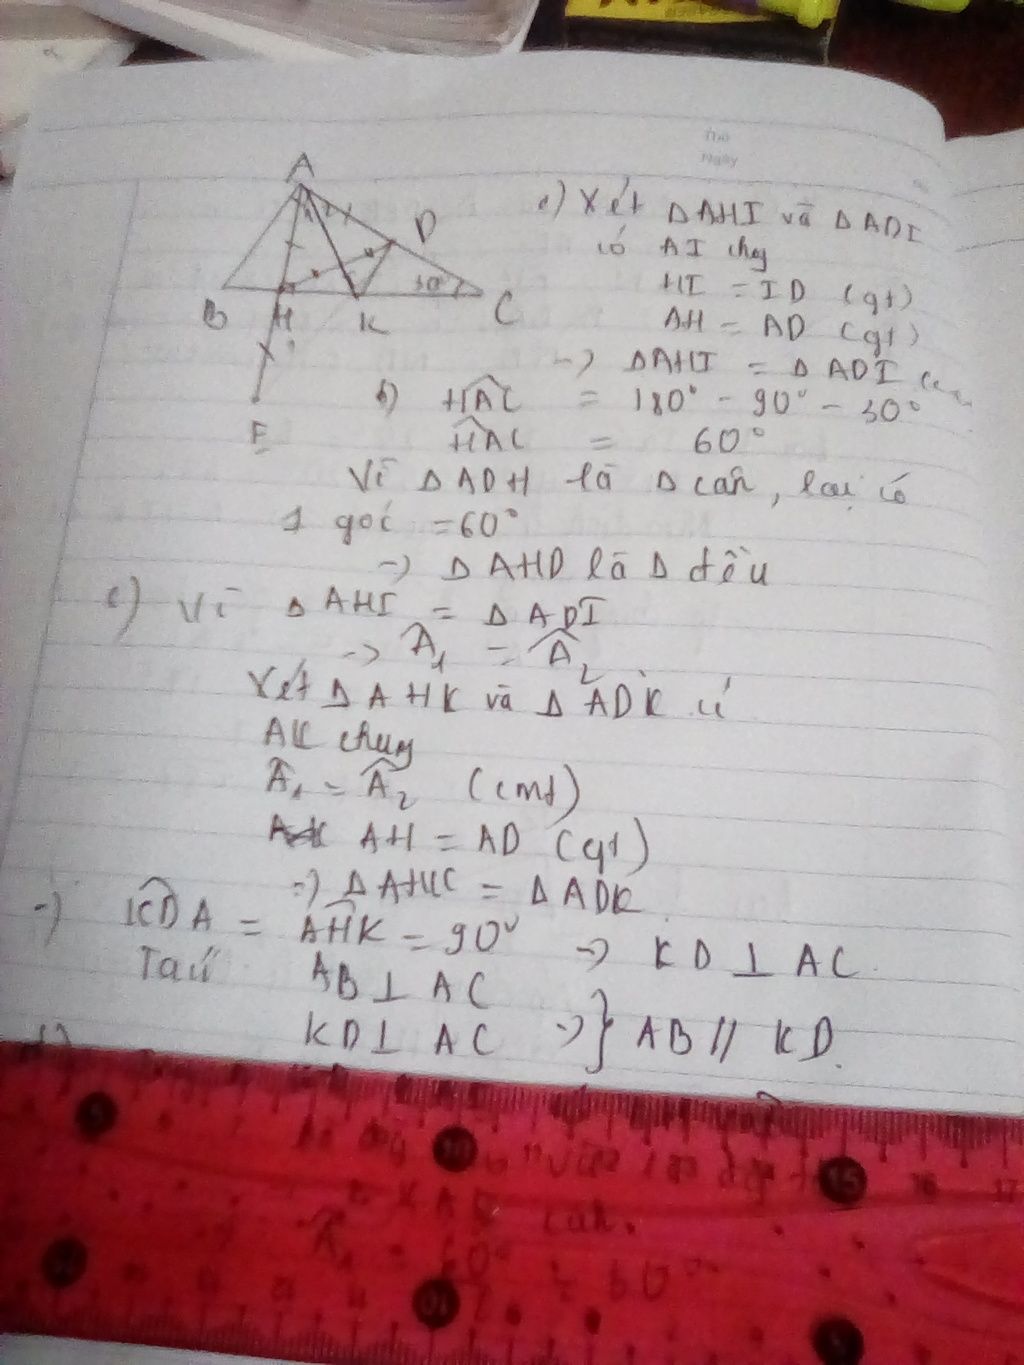 Thứ
Ngày
A
D
30°
B
H
K
C
E
a) Xét Δ AHI và Δ ADI
có AI chg
HI = ID (gt)
AH = AD (gt)
-> Δ AHI = Δ ADI
b) HAC = 180° - 90° - 30°
HAC = 60°
Vì Δ ADH là Δ cân, lại có
1 góc = 60°
-> Δ AHD là Δ đều
c) Vì Δ AHI = Δ ADI
-> Â1 = Â2
Xét Δ AHK và Δ ADK có
AK chung
Â1 = Â2 (cmt)
AH = AD (gt)
=> Δ AHK = Δ ADK
-> KDA = AHK = 90° -> KD ⊥ AC
Ta có AB ⊥ AC
KD ⊥ AC -> } AB // KD.
d)
10
15
16
17
cân.
10